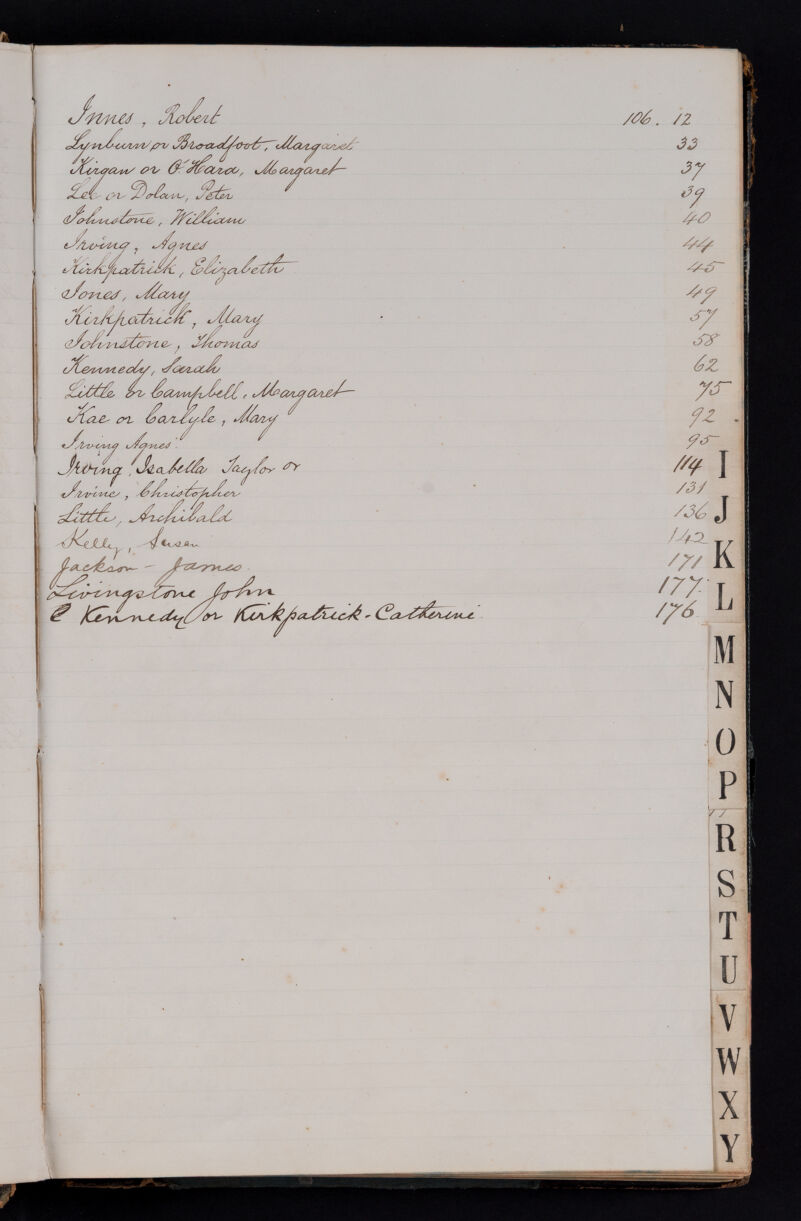 Innes, Robert 106. 12
Lynburn or Broadfoot, Margaret 33
Kirgan or O'Hara, Margaret 37
Lee or Dolan, Peter 39
Johnstone, William 40
Irving, Agnes 44
Kirkpatrick, Elizabeth 45
Jones, Mary 49
Kirkpatrick, Mary 57
Johnstone, Thomas 58
Kennedy, Sarah 62
Little or Campbell, Margaret 75
Kae or Carlyle, Mary 92
Irving Agnes. 95
Irving, Isabella Taylor or 114
Irvine, Christopher 131
Little, Archibald 136
Kelly, Susan 142
Jackson - James. 171
Livingstone John 177.
Kennedy or Kirkpatrick - Catherine 176
I
J
K
L
M
N
O
P
R
S
T
U
V
W
X
Y